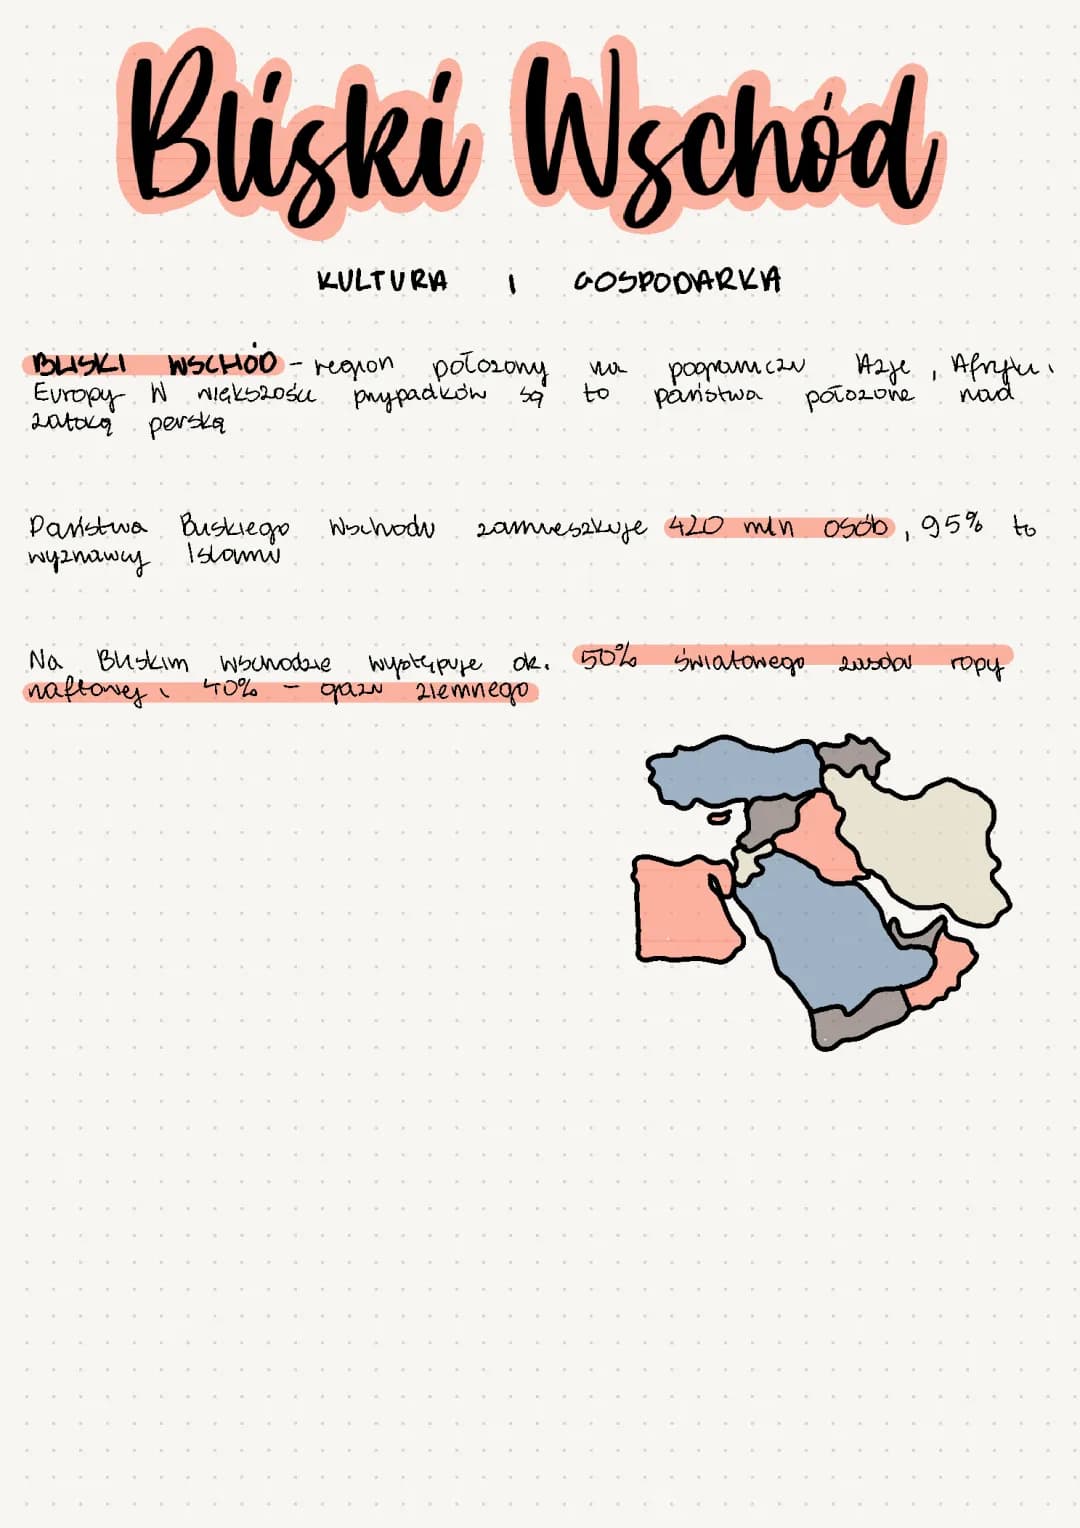 Bliski Wschód
KULTURA I GOSPODARKA
BLISKI WSCHÓD - region położony na pograniczu Azji, Afryki i
Europy W większości przypadków są to państwa położone nad
zatoką perską
Państwa Bliskiego Wschodu zamieszkuje 420 mln osób, 95% to
wyznawcy Islamu
Na Bliskim wschodzie występuje ok. 50% światowego zasobu ropy
naftowej i 40% - gazu ziemnego